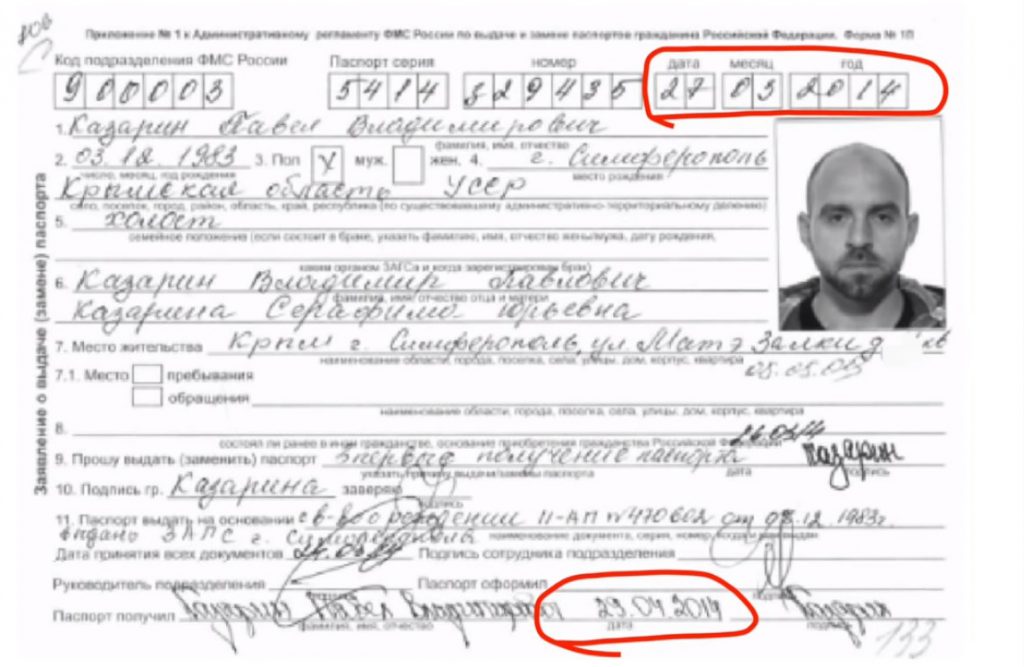 Приложение № 1 к Административному регламенту ФМС России по выдаче и замене паспортов гражданина Российской Федерации. Форма № 1П
Код подразделения ФМС России Паспорт серия номер дата месяц год
900003 5414 329435 27 03 2014
1. Казарин Павел Владимирович
фамилия, имя, отчество
2. 03.12.1983 3. Пол V муж. жен. 4. г. Симферополь
число, месяц, год рождения место рождения
Крымская область УССР
село, поселок, город, район, область, край, республика (по существовавшему административно-территориальному делению)
5. холост
семейное положение (если состоит в браке, указать фамилию, имя, отчество жены/мужа, дату рождения,
каким органом ЗАГСа и когда зарегистрирован брак)
6. Казарин Владимир Павлович
фамилия, имя, отчество отца и матери
Казарина Серафима Юрьевна
7. Место жительства Крым г. Симферополь, ул Матэ Залки д кв
наименование области, города, поселка, села, улицы, дом, корпус, квартира
7.1. Место пребывания
обращения
наименование области, города, поселка, села, улицы, дом, корпус, квартира
8.
состоял ли ранее в ином гражданстве, основание приобретения гражданства Российской Федерации
9. Прошу выдать (заменить) паспорт впервые получение паспорта Казарин
указать причину выдачи/замены паспорта дата подпись
10. Подпись гр. Казарина заверяю
подпись
11. Паспорт выдать на основании св-во о рождении II-АП №470602 от 12.1983г.
выдано ЗАГС г. Симферополь наименование документа, серия, номер, когда и кем выдан
Дата принятия всех документов Подпись сотрудника подразделения
Руководитель подразделения Паспорт оформил
подпись подпись
Паспорт получил Казарин Павел Владимирович 29.04.2014 Казарин
фамилия, имя, отчество дата подпись
133
Заявление о выдаче (замене) паспорта